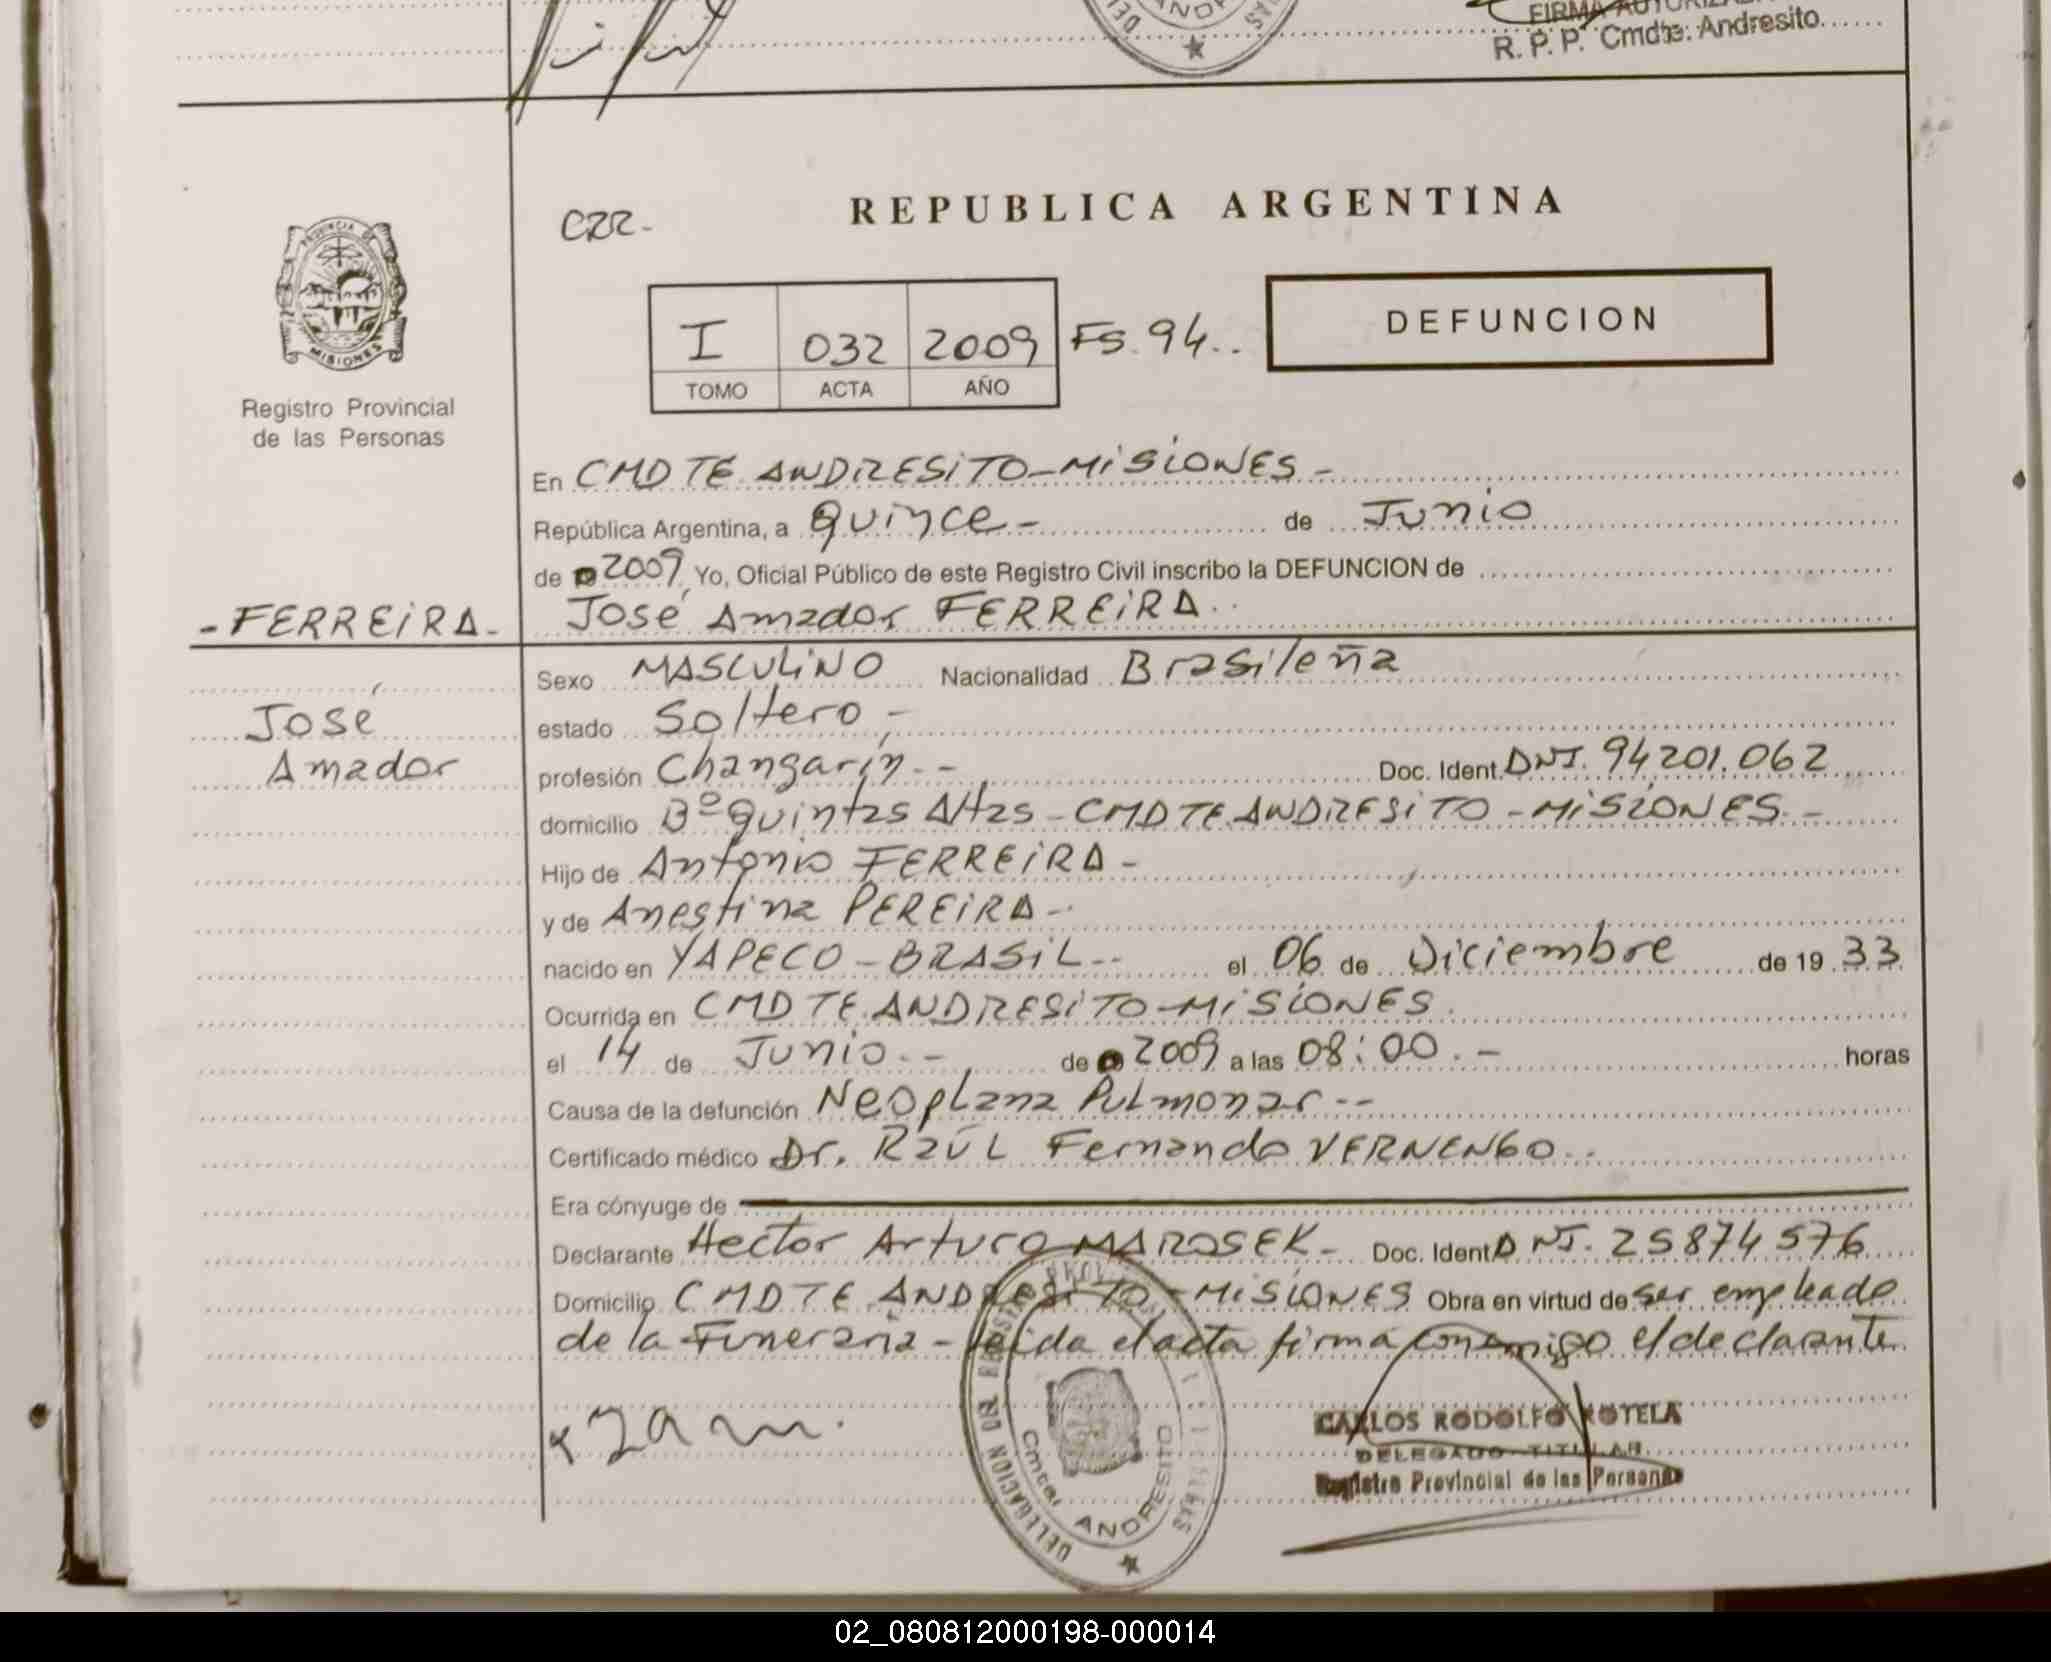 FIRMA AUTORIZA
R. P. P. Cmdte. Andresito
DEL
ANDR
AS
CRR-
REPUBLICA ARGENTINA
PROVINCIA DE
MISIONES
Registro Provincial
de las Personas
I 032 2009 Fs. 94..
TOMO ACTA AÑO
DEFUNCION
En CMDTE ANDRESITO-MISIONES-
República Argentina, a Quince- de Junio
de 2009, Yo, Oficial Público de este Registro Civil inscribo la DEFUNCION de
-FERREIRA- José Amador FERREIRA..
Sexo MASCULINO Nacionalidad Brasileña
José estado Soltero,-
Amador profesión Changarín.-- Doc. Ident. DNI. 94201.062
domicilio Bº Quintas Altas-CMDTE ANDRESITO-MISIONES.-
Hijo de Antonio FERREIRA-
y de Anestina PEREIRA-.
nacido en YAPECO-BRASIL-- el 06 de Diciembre de 19 33
Ocurrida en CMDTE ANDRESITO-MISIONES.
el 14 de Junio.- de 2009 a las 08:00.- horas
Causa de la defunción Neoplana Pulmonar--
Certificado médico Dr. Raúl Fernando VERNENGO..
Era cónyuge de
Declarante Hector Arturo MAROSEK- Doc. Ident DNI. 25874576
Domicilio CMDTE ANDRESITO-MISIONES Obra en virtud de ser empleado
de la Funeraria-leida el acta firma conmigo el declarante
DELEGACION DEL REGISTRO PROVINCIAL DE LAS PERSONAS
Cmte. ANDRESITO
CARLOS RODOLFO ROTELA
DELEGADO TITULAR
Registro Provincial de las Personas
02_080812000198-000014